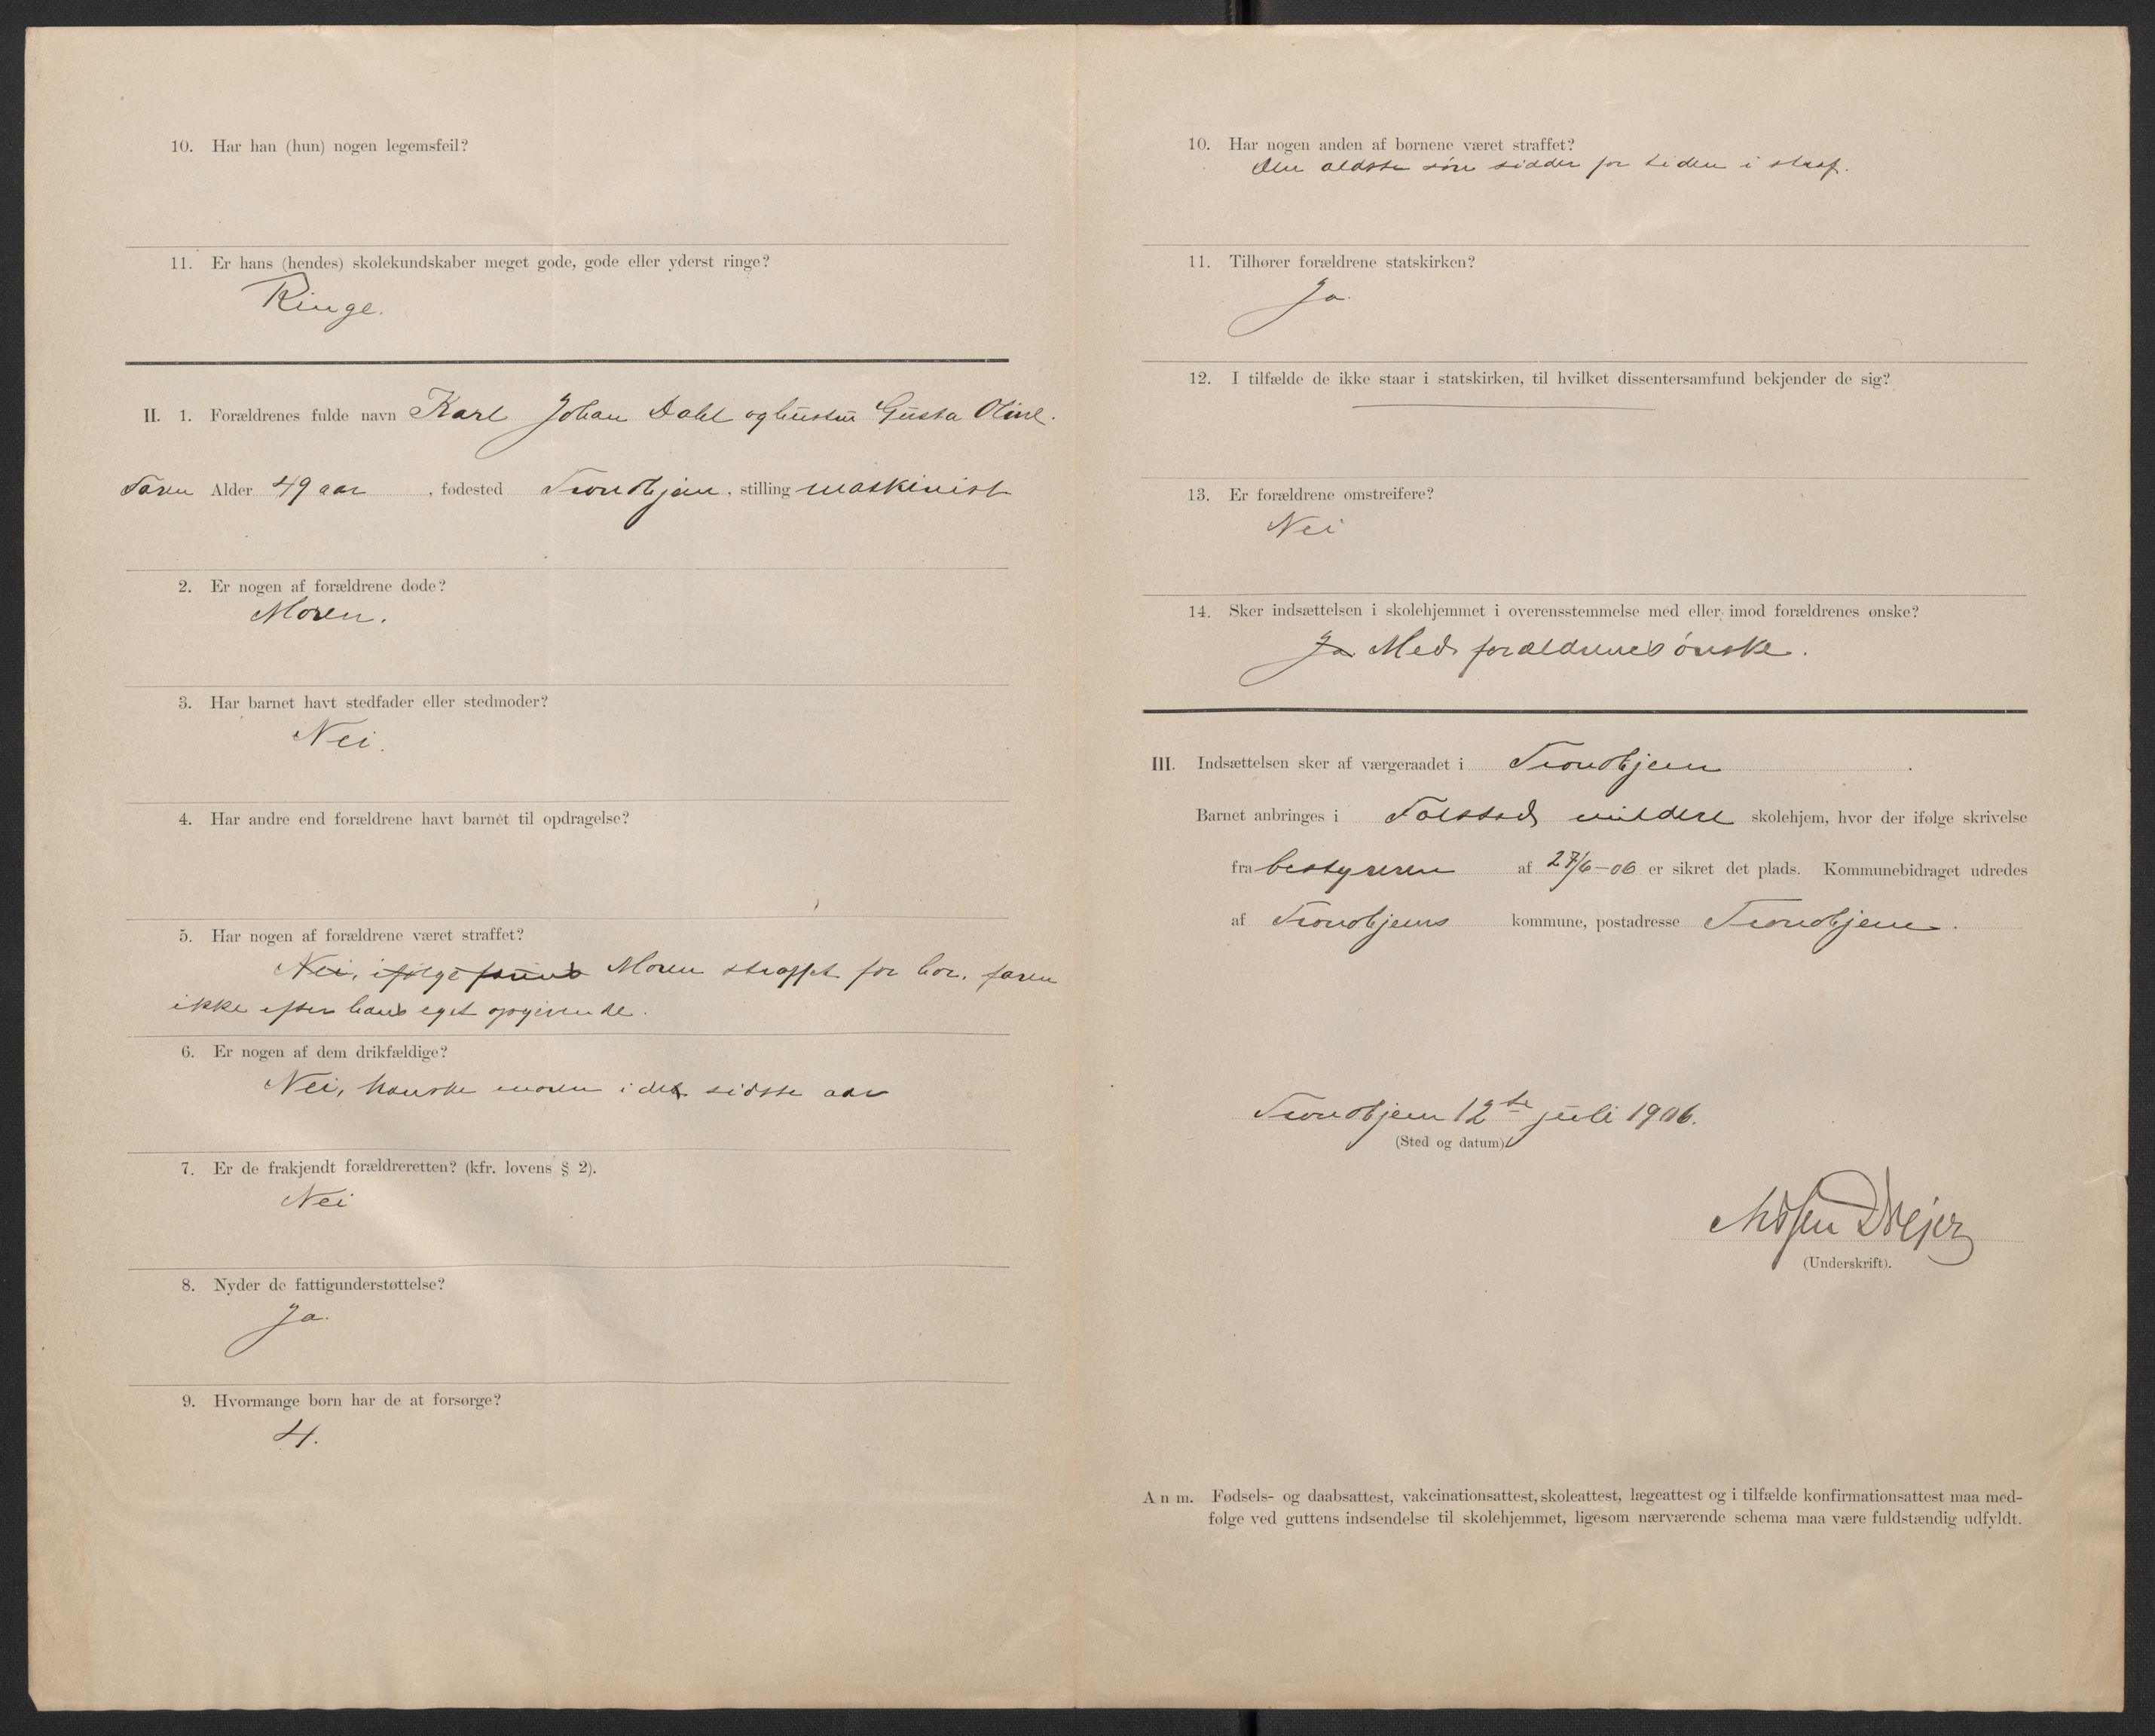 10. Har han (hun) nogen legemsfeil?
11. Er hans (hendes) skolekundskaber meget gode, gode eller yderst ringe?
Ringe.
II. 1. Forældrenes fulde navn Karl Johan Dahl og hustru Gusta Oline.
Faren Alder 49 aar, fødested Trondhjem, stilling maskinist
2. Er nogen af forældrene døde?
Moren.
3. Har barnet havt stedfader eller stedmoder?
Nei.
4. Har andre end forældrene havt barnet til opdragelse?
5. Har nogen af forældrene været straffet?
Nei, ifølge farens Moren straffet for hor, faren
ikke efter hans eget opgivende.
6. Er nogen af dem drikfældige?
Nei, kanske moren i det sidste aar
7. Er de frakjendt forældreretten? (kfr. lovens § 2).
Nei
8. Nyder de fattigunderstøttelse?
Ja.
9. Hvormange børn har de at forsørge?
4.
10. Har nogen anden af børnene været straffet?
Den ældste søn sidder for tiden i straf.
11. Tilhører forældrene statskirken?
Ja.
12. I tilfælde de ikke staar i statskirken, til hvilket dissentersamfund bekjender de sig?
13. Er forældrene omstreifere?
Nei
14. Sker indsættelsen i skolehjemmet i overensstemmelse med eller imod forældrenes ønske?
Ja. Med forældrenes ønske.
III. Indsættelsen sker af værgeraadet i Trondhjem.
Barnet anbringes i Falstad mildere skolehjem, hvor der ifølge skrivelse
fra bestyreren af 27/6-06 er sikret det plads. Kommunebidraget udredes
af Trondhjems kommune, postadresse Trondhjem.
Trondhjem 12te juli 1906.
(Sted og datum)
(Underskrift).
Anm. Fødsels- og daabsattest, vakcinationsattest, skoleattest, lægeattest og i tilfælde konfirmationsattest maa med-
følge ved guttens indsendelse til skolehjemmet, ligesom nærværende schema maa være fuldstændig udfyldt.